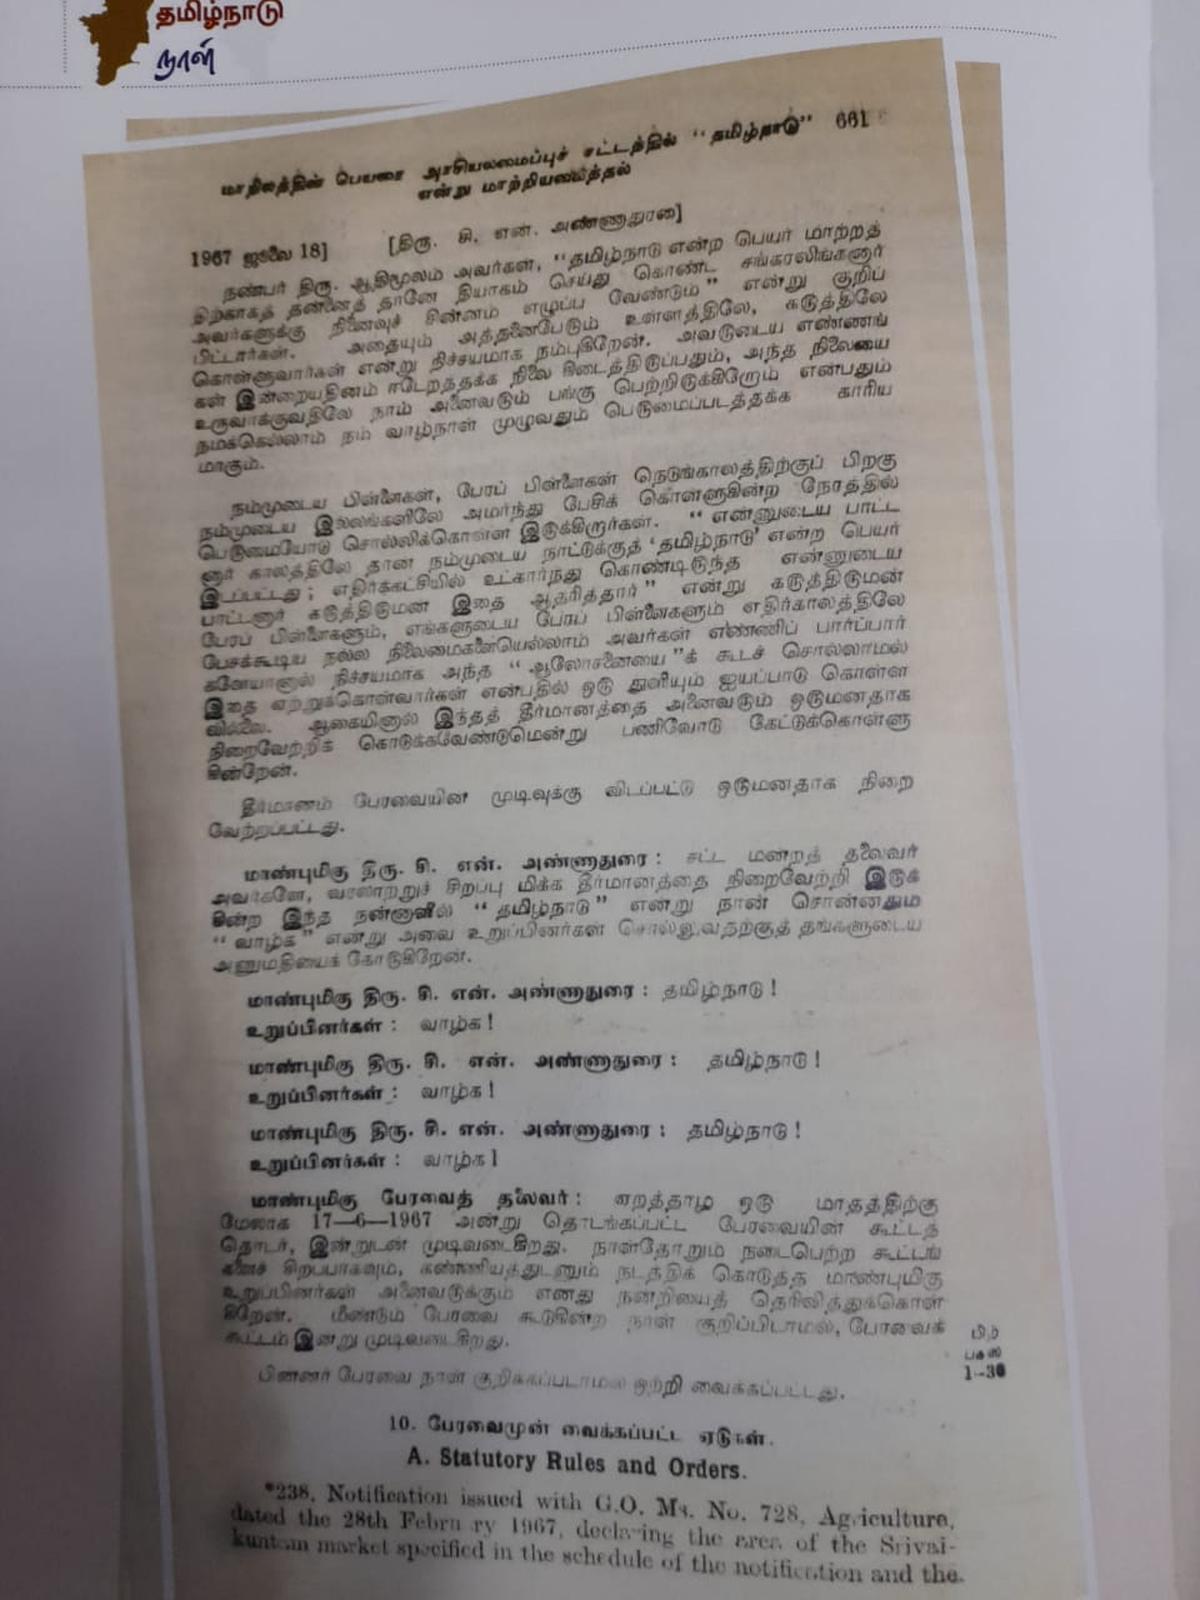 தமிழ்நாடு
நாள்
மாநிலத்தின் பெயரை அரசியலமைப்புச் சட்டத்தில் “தமிழ்நாடு” 661
என்று மாற்றியமைத்தல்
1967 ஜூலை 18] [திரு. சி. என். அண்ணாதுரை]
நண்பர் திரு. ஆதிமூலம் அவர்கள், “தமிழ்நாடு என்ற பெயர் மாற்றத்
திற்காகத் தன்னைத் தானே தியாகம் செய்து கொண்ட சங்கரலிங்கனார்
அவர்களுக்கு நினைவுச் சின்னம் எழுப்ப வேண்டும்” என்று குறிப்
பிட்டார்கள். அதையும் அத்தனைபேரும் உள்ளத்திலே, கருத்திலே
கொள்ளுவார்கள் என்று நிச்சயமாக நம்புகிறேன். அவருடைய எண்ணங்
கள் இன்றையதினம் ஈடேறத்தக்க நிலை கிடைத்திருப்பதும், அந்த நிலையை
உருவாக்குவதிலே நாம் அனைவரும் பங்கு பெற்றிருக்கிறோம் என்பதும்
நமக்கெல்லாம் நம் வாழ்நாள் முழுவதும் பெருமைப்படத்தக்க காரிய
மாகும்.
நம்முடைய பிள்ளைகள், பேரப் பிள்ளைகள் நெடுங்காலத்திற்குப் பிறகு
நம்முடைய இல்லங்களிலே அமர்ந்து பேசிக் கொள்ளுகின்ற நேரத்தில்
பெருமையோடு சொல்லிக்கொள்ள இருக்கிறார்கள். “என்னுடைய பாட்ட
னார் காலத்திலே தான் நம்முடைய நாட்டுக்குத் ‘தமிழ்நாடு’ என்ற பெயர்
இடப்பட்டது; எதிர்க்கட்சியில் உட்கார்ந்து கொண்டிருந்த என்னுடைய
பாட்டனார் கருத்திருமன் இதை ஆதரித்தார்” என்று கருத்திருமன்
பேரப் பிள்ளைகளும், எங்களுடைய பேரப் பிள்ளைகளும் எதிர்காலத்திலே
பேசக்கூடிய நல்ல நிலைமைகளையெல்லாம் அவர்கள் எண்ணிப் பார்ப்பார்
களேயானால் நிச்சயமாக அந்த “ஆலோசனையை”க் கூடச் சொல்லாமல்
இதை ஏற்றுக்கொள்வார்கள் என்பதில் ஒரு துளியும் ஐயப்பாடு கொள்ள
வில்லை. ஆகையினால் இந்தத் தீர்மானத்தை அனைவரும் ஒருமனதாக
நிறைவேற்றிக் கொடுக்கவேண்டுமென்று பணிவோடு கேட்டுக்கொள்ளு
கின்றேன்.
தீர்மானம் பேரவையின் முடிவுக்கு விடப்பட்டு ஒருமனதாக நிறை
வேற்றப்பட்டது.
மாண்புமிகு திரு. சி. என். அண்ணாதுரை : சட்ட மன்றத் தலைவர்
அவர்களே, வரலாற்றுச் சிறப்பு மிக்க தீர்மானத்தை நிறைவேற்றி இருக்
கின்ற இந்த நன்னாளில் “தமிழ்நாடு” என்று நான் சொன்னதும்
“வாழ்க” என்று அவை உறுப்பினர்கள் சொல்லுவதற்குத் தங்களுடைய
அனுமதியைக் கோருகிறேன்.
மாண்புமிகு திரு. சி. என். அண்ணாதுரை : தமிழ்நாடு !
உறுப்பினர்கள் : வாழ்க !
மாண்புமிகு திரு. சி. என். அண்ணாதுரை : தமிழ்நாடு !
உறுப்பினர்கள் : வாழ்க !
மாண்புமிகு திரு. சி. என். அண்ணாதுரை : தமிழ்நாடு !
உறுப்பினர்கள் : வாழ்க !
மாண்புமிகு பேரவைத் தலைவர் : ஏறத்தாழ ஒரு மாதத்திற்கு
மேலாக 17—6—1967 அன்று தொடங்கப்பட்ட பேரவையின் கூட்டத்
தொடர், இன்றுடன் முடிவடைகிறது. நாள்தோறும் நடைபெற்ற கூட்டங்
களைச் சிறப்பாகவும், கண்ணியத்துடனும் நடத்திக் கொடுத்த மாண்புமிகு
உறுப்பினர்கள் அனைவருக்கும் எனது நன்றியைத் தெரிவித்துக்கொள்
கிறேன். மீண்டும் பேரவை கூடுகின்ற நாள் குறிப்பிடாமல், பேரவைக்
கூட்டம் இன்று முடிவடைகிறது.
பிற்
பகல்
1-30
பின்னர் பேரவை நாள் குறிக்கப்படாமல் ஒற்றி வைக்கப்பட்டது.
10. பேரவைமுன் வைக்கப்பட்ட ஏடுகள்.
A. Statutory Rules and Orders.
*238. Notification issued with G.O. Ms. No. 728, Agriculture,
dated the 28th February 1967, declaring the area of the Srivai-
kuntam market specified in the schedule of the notification and the